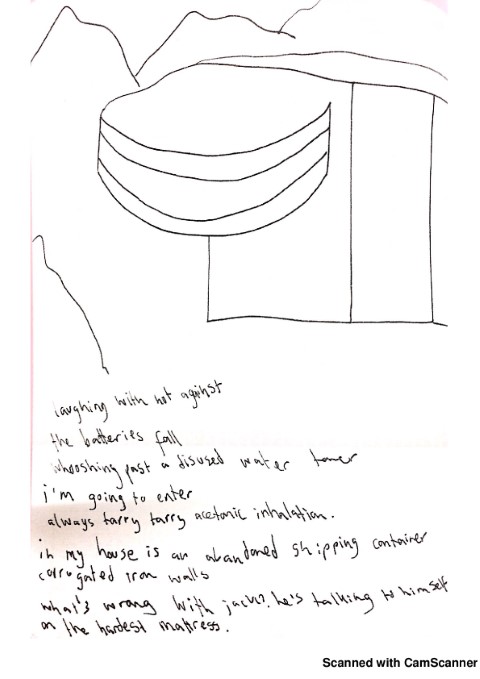 laughing with not against
the batteries fall
whooshing past a disused water tower
i'm going to enter
always tarry tarry acetonic inhalation.
in my house is an abandoned shipping container
corrugated iron walls
what's wrong with jack? he's talking to himself
on the hardest matress.
Scanned with CamScanner